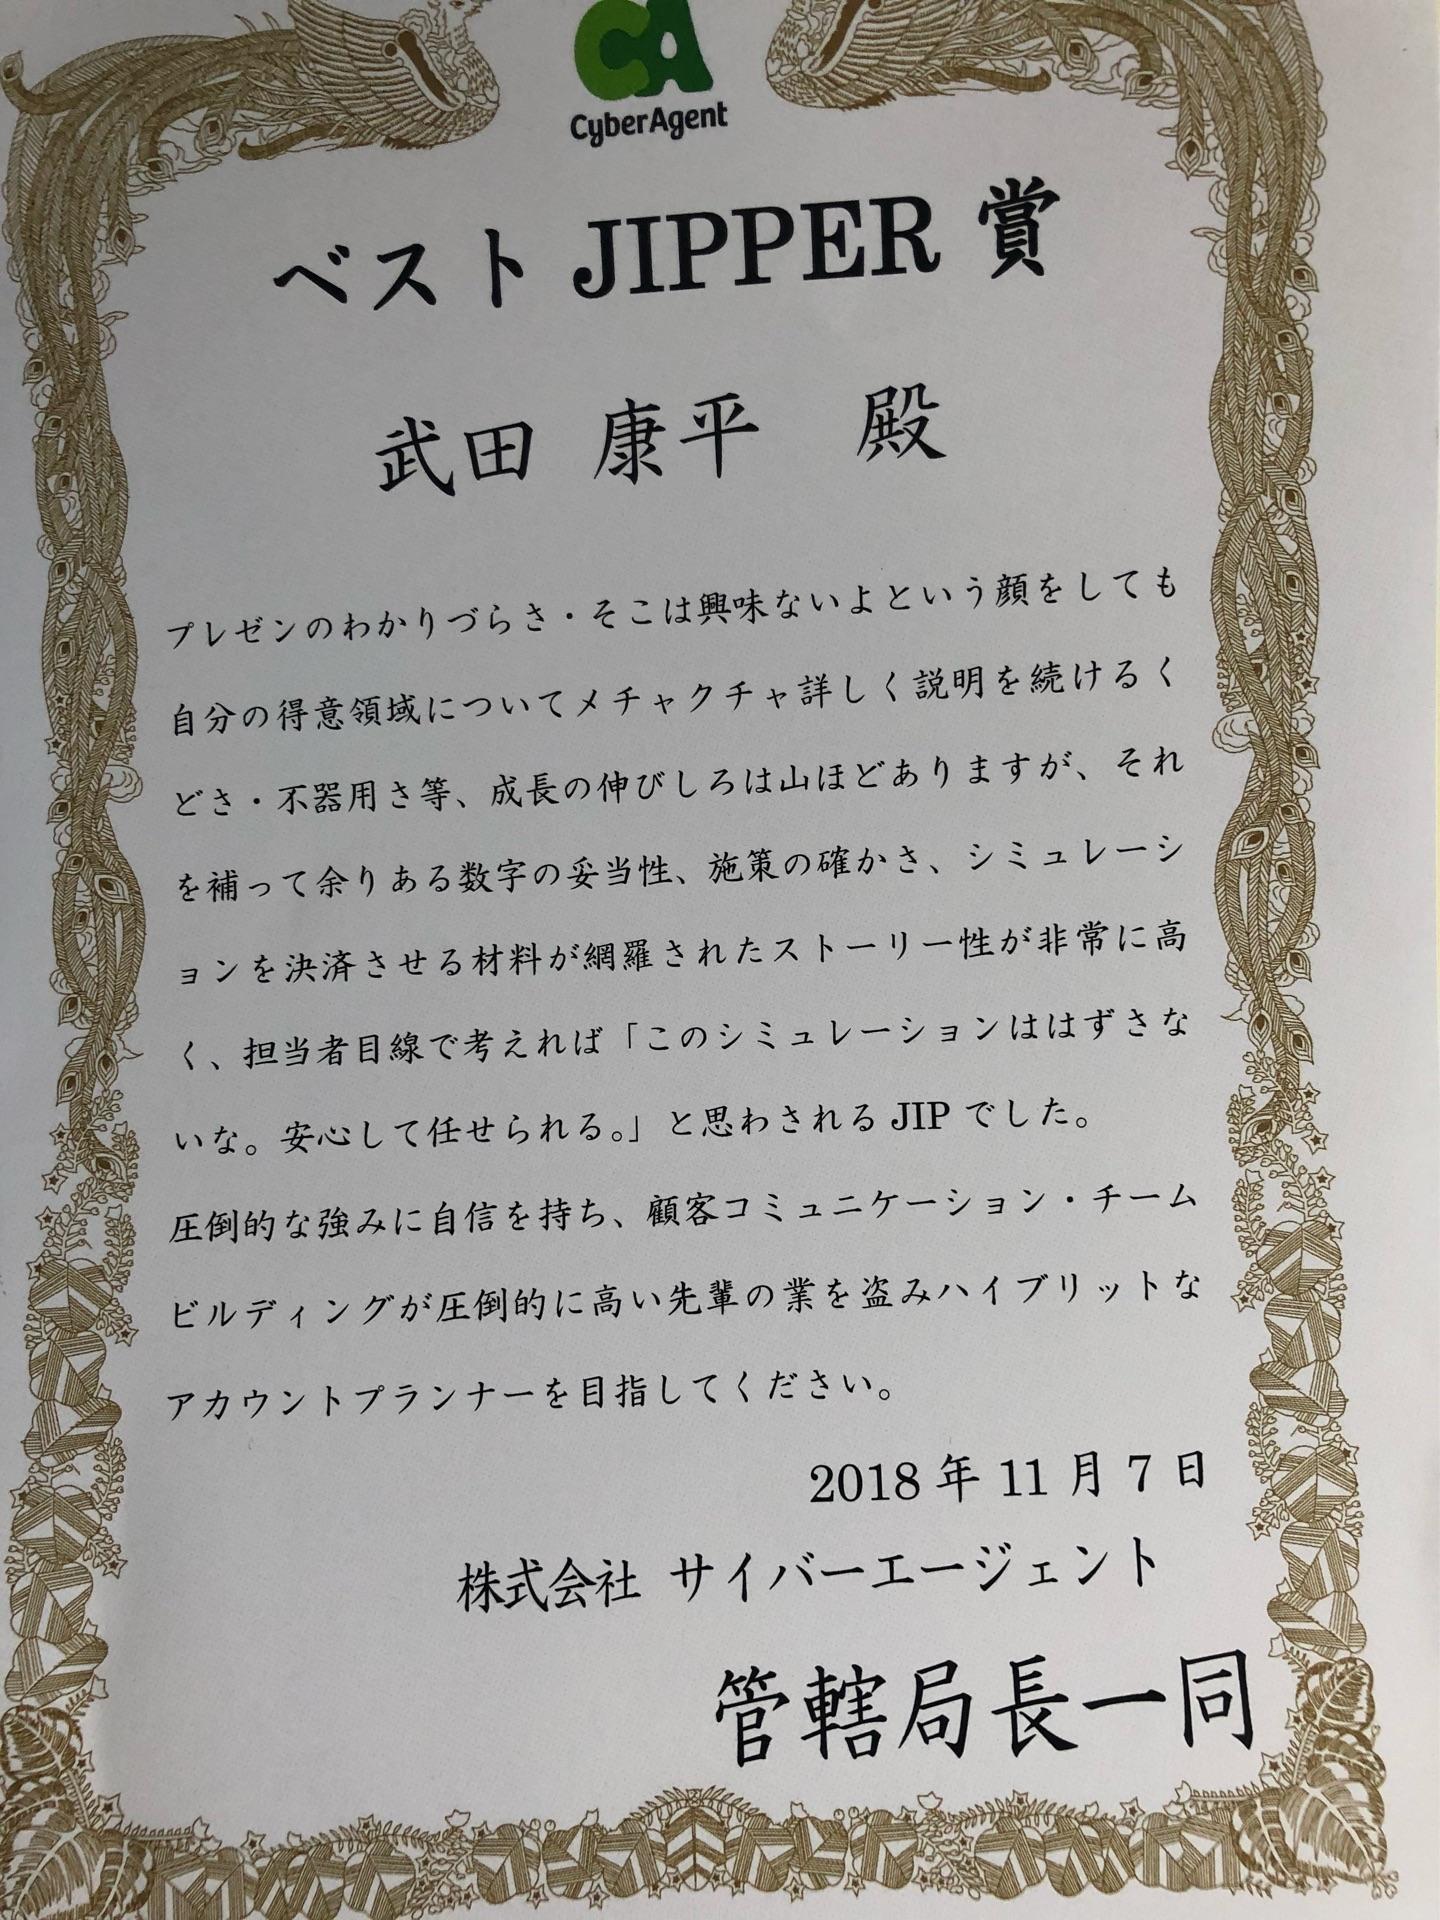 CA
CyberAgent
ベスト JIPPER 賞
武田 康平　殿
プレゼンのわかりづらさ・そこは興味ないよという顔をしても
自分の得意領域についてメチャクチャ詳しく説明を続けるく
どさ・不器用さ等、成長の伸びしろは山ほどありますが、それ
を補って余りある数字の妥当性、施策の確かさ、シミュレーシ
ョンを決済させる材料が網羅されたストーリー性が非常に高
く、担当者目線で考えれば「このシミュレーションははずさな
いな。安心して任せられる。」と思わされる JIP でした。
圧倒的な強みに自信を持ち、顧客コミュニケーション・チーム
ビルディングが圧倒的に高い先輩の業を盗みハイブリットな
アカウントプランナーを目指してください。
2018 年 11 月 7 日
株式会社 サイバーエージェント
管轄局長一同